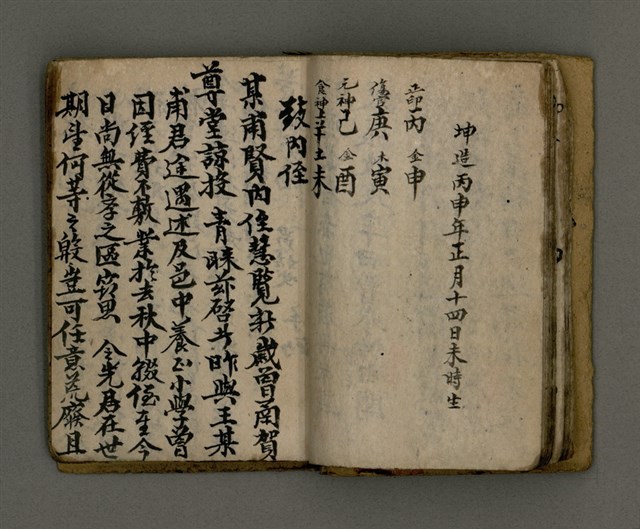 坤造丙申年正月十四日未時生
丙金申
庚木寅
元神己金酉
食神上辛土未
致內侄
某甫賢內侄慧覽新歲曾肅賀
尊堂諒投青睞茲啓者昨與王某
甫君途遇述及邑中養正小學曾
因經費不敷業於去秋中輟侄至今
日尚無從字之區竊思令先君在世
期望何等之殷豈可任意荒廢且